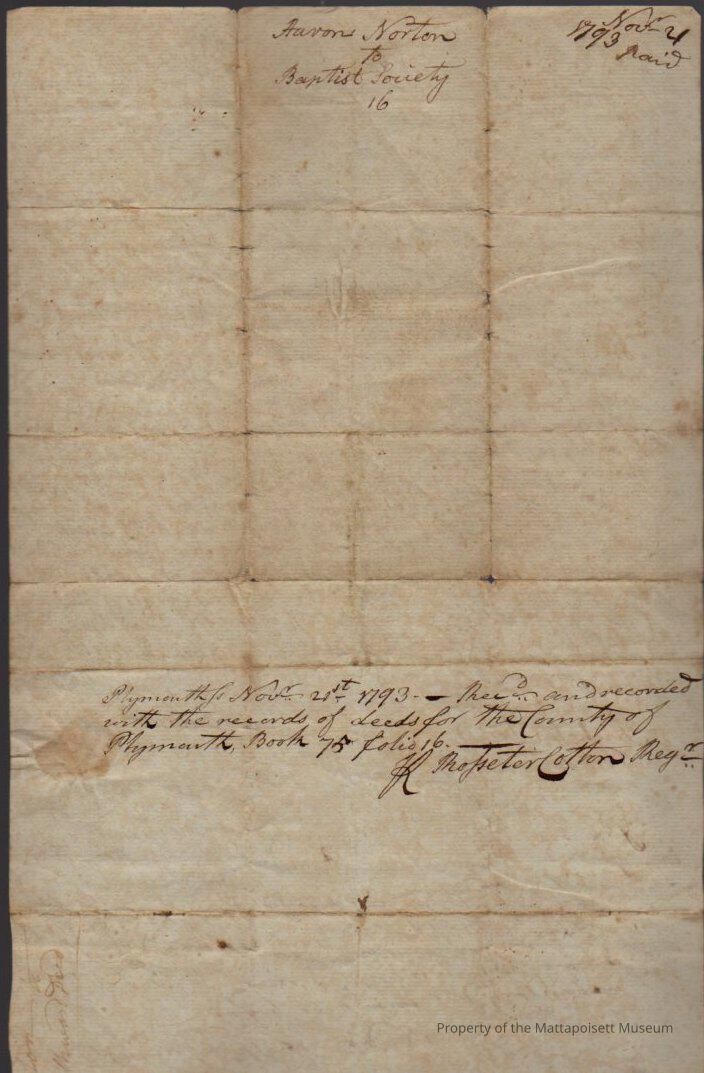 Aaron Norton
to
Baptist Society
16
Novr. 21
1793
Paid
Plymouth ss Novr. 21st 1793 - Recd. and recorded
with the records of deeds for the County of
Plymouth, Book 75 folio 16.
Rosseter Cotton Regr.
Property of the Mattapoisett Museum